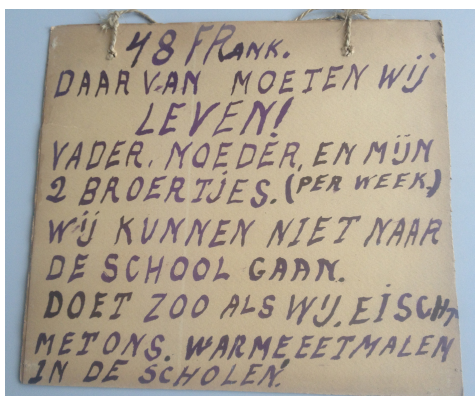 48 FRANK.
DAARVAN MOETEN WIJ
LEVEN!
VADER, MOEDER, EN MIJN
2 BROERTJES. (PER WEEK.)
WIJ KUNNEN NIET NAAR
DE SCHOOL GAAN.
DOET ZOO ALS WIJ. EISCHT
MET ONS. WARME, EETMALEN
IN DE SCHOLEN.